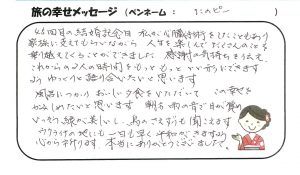 旅の幸せメッセージ(ペンネーム: たのピー )
48回目の結婚記念日 私が心臓手術をしたこともあり
家族に支えてもらいながら 人生を楽しんでたくさんのことを
乗り越えてくることができました 感謝の気持ちを伝え
これからの2人の時間をもっともっといい形にできます
ようゆっくりと語り合いたいと思います
風呂につかり おいしい夕食をいただいて この幸せを
かみしめたいと思います 朝も 雨の音で目が覚め
いっそう緑が美しい、鳥のさえずりも聞こえます
ウクライナの地にも一日も早く平和がきますよう
心から祈ります。本当にありがとうございました。